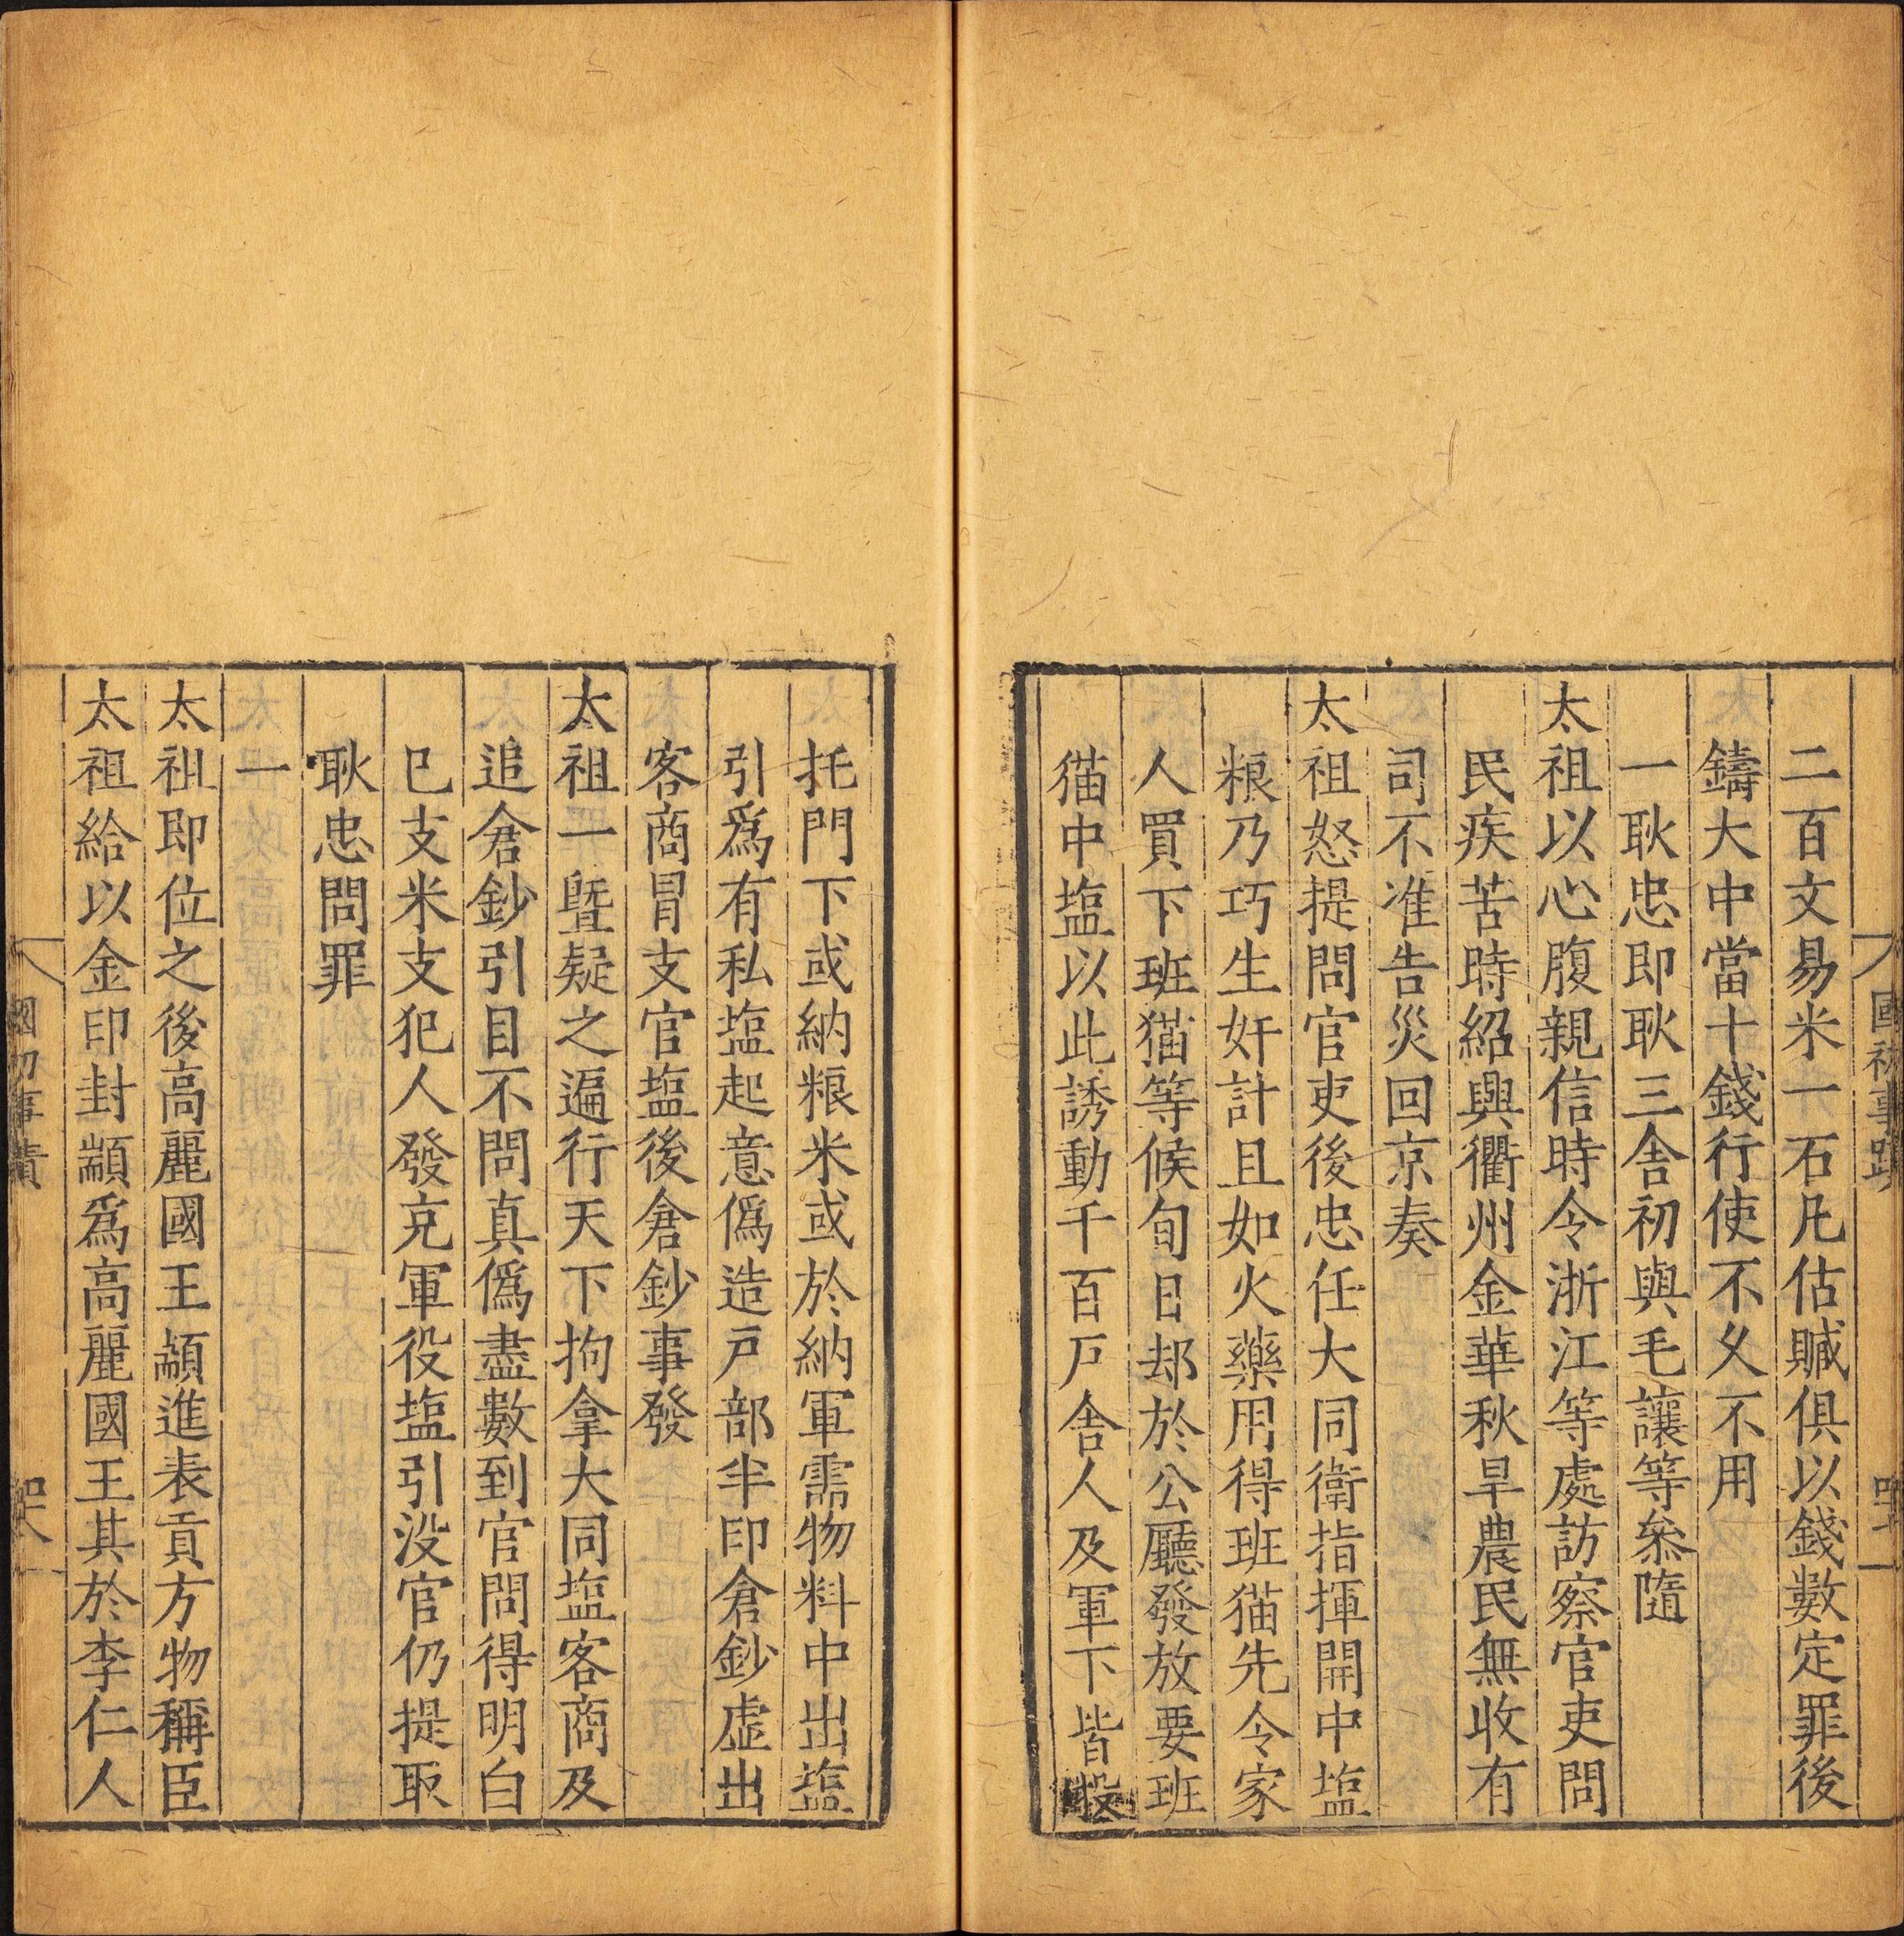 國初事蹟
二百文易米一石凡估贓俱以錢數定罪後
鑄大中當十錢行使不久不用
一耿忠即耿三舍初與毛讓等叅隨
太祖以心腹親信時令浙江等處訪察官吏問
民疾苦時紹興衢州金華秋旱農民無收有
司不准告災回京奏
太祖怒提問官吏後忠任大同衛指揮開中塩
粮乃巧生奸計且如火藥用得班猫先令家
人買下班猫等候旬日却於公廳發放要班
猫中塩以此誘動千百戸舍人及軍下皆
托門下或納粮米或於納軍需物料中出塩
引爲有私塩起意僞造戸部半印倉鈔虚出
客商冒支官塩後倉鈔事發
太祖一暨疑之遍行天下拘拿大同塩客商及
追倉鈔引目不問真僞盡數到官問得明白
已支米支犯人發充軍役塩引没官仍提取
耿忠問罪
一
太祖即位之後高麗國王顓進表貢方物稱臣
太祖給以金印封顓爲高麗國王其於李仁人
國初事蹟